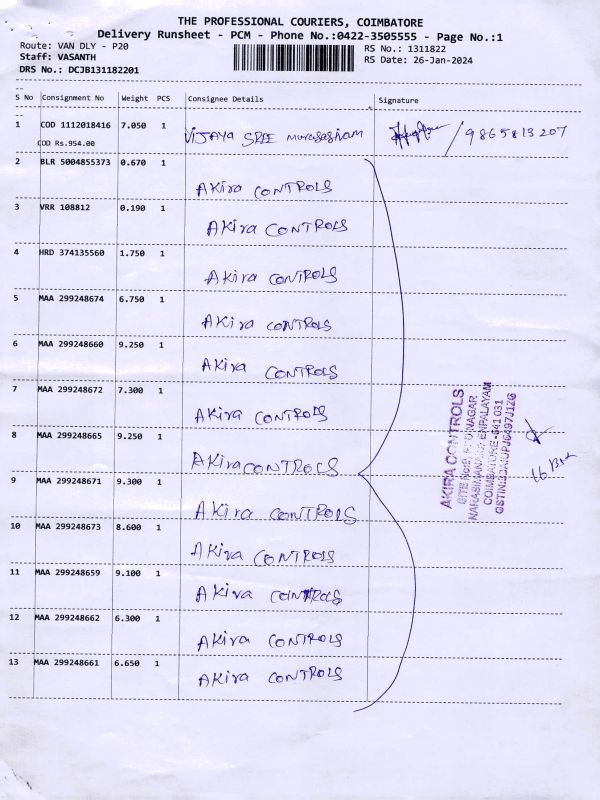 THE PROFESSIONAL COURIERS, COIMBATORE
Delivery Runsheet - PCM - Phone No.:0422-3505555 - Page No.:1
Route: VAN DLY - P20
RS No.: 1311822
Staff: VASANTH
RS Date: 26-Jan-2024
DRS No.: DCJB131182201
S No Consignment No Weight PCS Consignee Details Signature
1 COD 1112018416 7.050 1 VIJAYA SREE Murugasivam 9865813207
COD Rs.954.00
2 BLR 5004855373 0.670 1 AKira CONTROLS
3 VRR 108812 0.190 1 AKira CONTROLS
4 HRD 374135560 1.750 1 AKira CONTROLS
5 MAA 299248674 6.750 1 AKira CONTROLS
6 MAA 299248660 9.250 1 AKira CONTROLS
7 MAA 299248672 7.300 1 AKira CONTROLS
8 MAA 299248665 9.250 1 AKira CONTROLS
9 MAA 299248671 9.300 1 AKira CONTROLS
10 MAA 299248673 8.600 1 AKira CONTROLS
11 MAA 299248659 9.100 1 AKira CONTROLS
12 MAA 299248662 6.300 1 AKira CONTROLS
13 MAA 299248661 6.650 1 AKira CONTROLS
AKIRA CONTROLS
SITE No:9, NAGAR
COIMBATORE-641 031